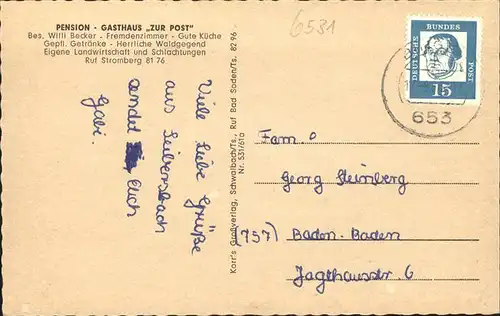 PENSION - GASTHAUS „ZUR POST"
Bes. Willi Becker - Fremdenzimmer - Gute Küche
Gepfl. Getränke - Herrliche Waldgegend
Eigene Landwirtschaft und Schlachtungen
Ruf Stromberg 81 76
6531
DEUTSCHE
BUNDES
POST
15
653
Viele liebe Grüße
aus Seibersbach
sendet Euch
Gabi.
Korr's Großverlag, Schwalbach/Ts., Ruf Bad Soden/Ts. 82 96
Nr. 531/61a
Fam.
Georg Steinberg
(757) Baden-Baden
Jagdhausstr. 6